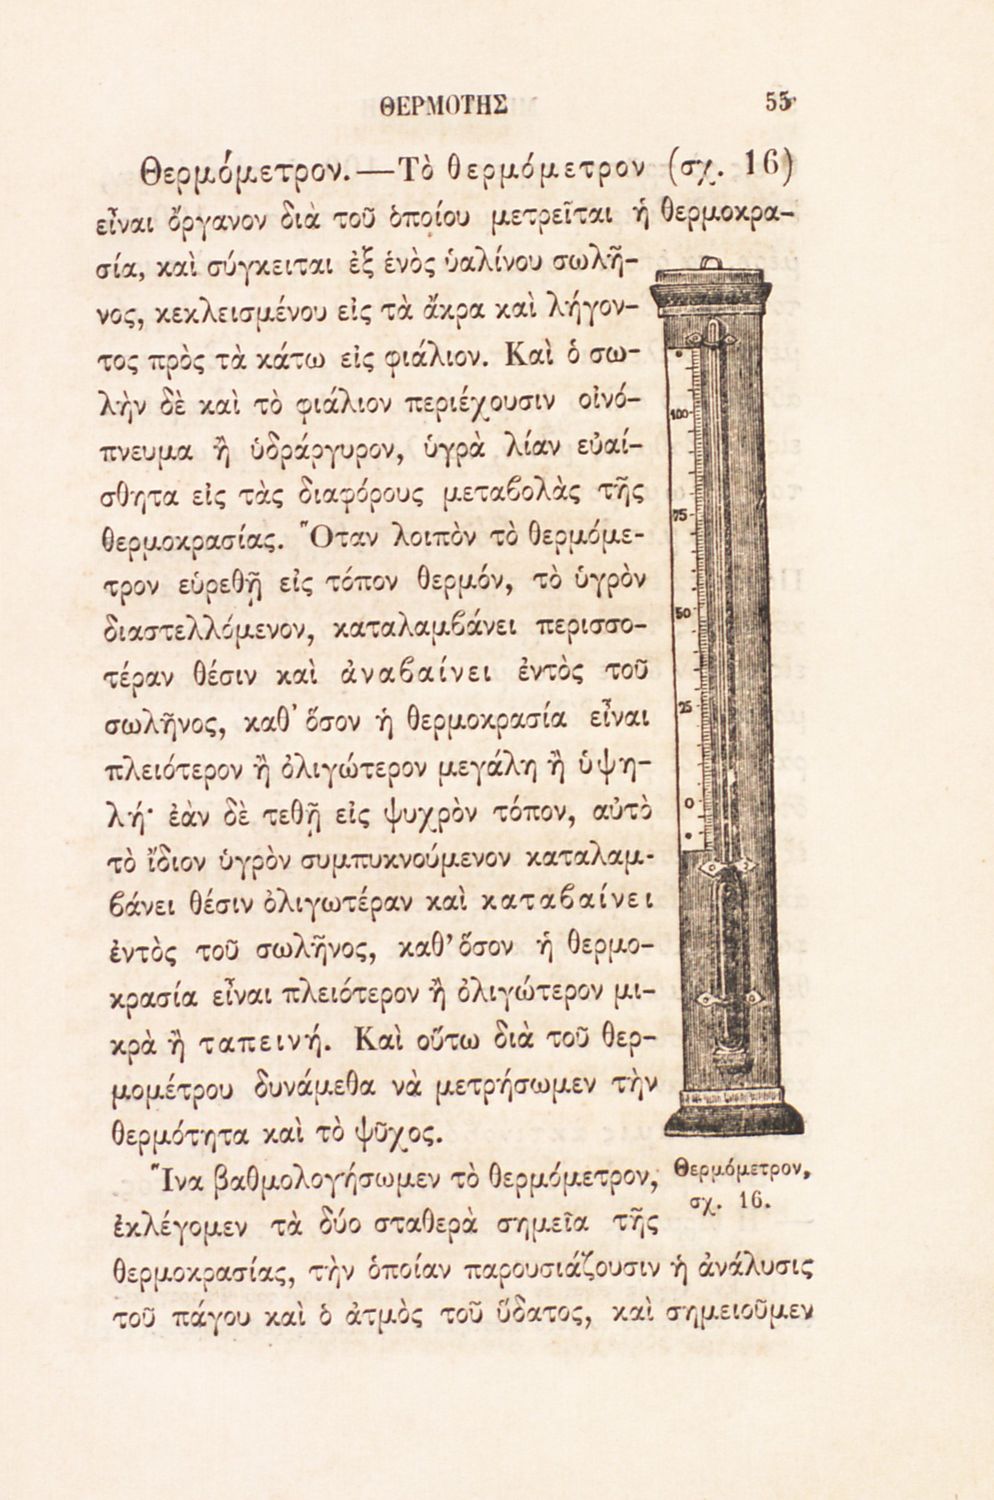 ΘΕΡΜΟΤΗΣ 55
Θερμόμετρον.—Τὸ θερμόμετρον (σχ. 16)
εἶναι ὄργανον διὰ τοῦ ὁποίου μετρεῖται ἡ θερμοκρα-
σία, καὶ σύγκειται ἐξ ἑνὸς ὑαλίνου σωλῆ-
νος, κεκλεισμένου εἰς τὰ ἄκρα καὶ λήγον-
τος πρὸς τὰ κάτω εἰς φιάλιον. Καὶ ὁ σω-
λὴν δὲ καὶ τὸ φιάλιον περιέχουσιν οἰνό-
πνευμα ἢ ὑδράργυρον, ὑγρὰ λίαν εὐαί-
σθητα εἰς τὰς διαφόρους μεταβολὰς τῆς
θερμοκρασίας. Ὅταν λοιπὸν τὸ θερμόμε-
τρον εὑρεθῇ εἰς τόπον θερμόν, τὸ ὑγρὸν
διαστελλόμενον, καταλαμβάνει περισσο-
τέραν θέσιν καὶ ἀναβαίνει ἐντὸς τοῦ
σωλῆνος, καθ' ὅσον ἡ θερμοκρασία εἶναι
πλειότερον ἢ ὀλιγώτερον μεγάλη ἢ ὑψη-
λή· ἐὰν δὲ τεθῇ εἰς ψυχρὸν τόπον, αὐτὸ
τὸ ἴδιον ὑγρὸν συμπυκνούμενον καταλαμ-
βάνει θέσιν ὀλιγωτέραν καὶ καταβαίνει
ἐντὸς τοῦ σωλῆνος, καθ' ὅσον ἡ θερμο-
κρασία εἶναι πλειότερον ἢ ὀλιγώτερον μι-
κρὰ ἢ ταπεινή. Καὶ οὕτω διὰ τοῦ θερ-
μομέτρου δυνάμεθα νὰ μετρήσωμεν τὴν
θερμότητα καὶ τὸ ψῦχος.
Ἵνα βαθμολογήσωμεν τὸ θερμόμετρον,
ἐκλέγομεν τὰ δύο σταθερὰ σημεῖα τῆς
θερμοκρασίας, τὴν ὁποίαν παρουσιάζουσιν ἡ ἀνάλυσις
τοῦ πάγου καὶ ὁ ἀτμὸς τοῦ ὕδατος, καὶ σημειοῦμεν
100
75
50
25
0
Θερμόμετρον,
σχ. 16.